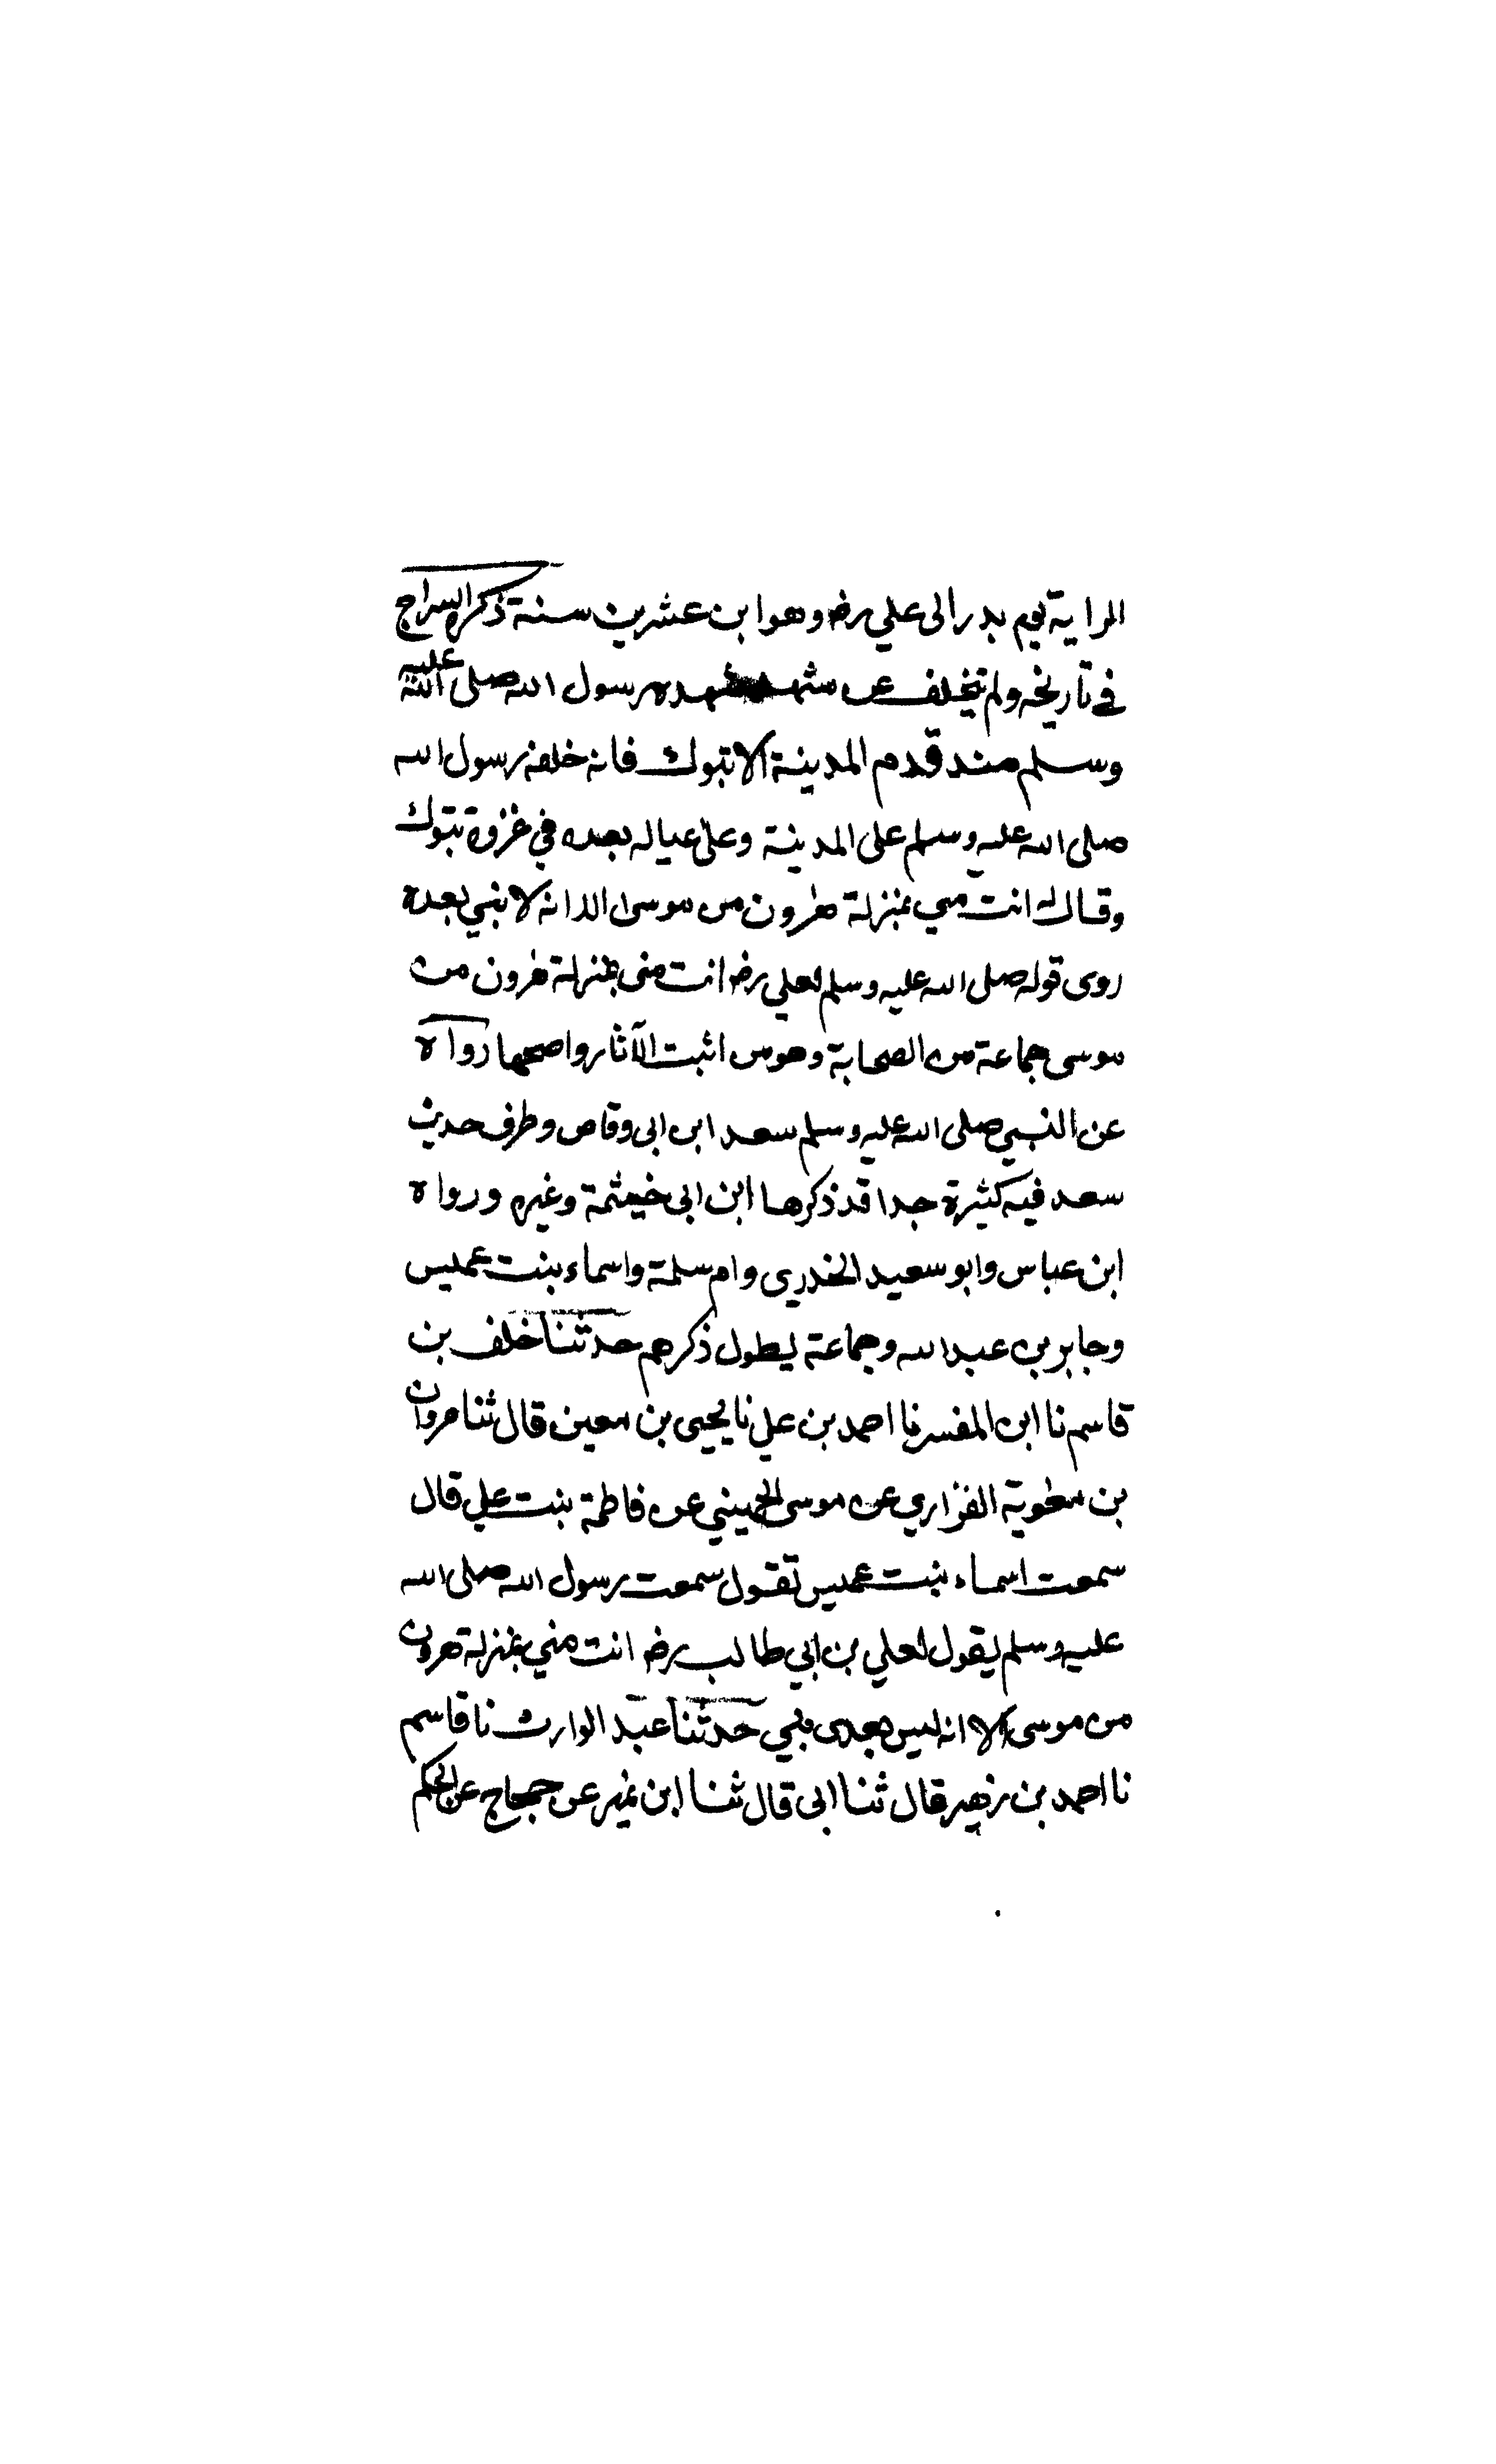 الراية يوم بدر الى علي رضه وهو ابن عشرين سنة ذكره السراج
في تاريخه ولم يتخلف عن مشهد شهده رسول الله صلى الله عليه
وسلم منذ قدم المدينة الا تبوك فانه خلفه رسول الله
صلى الله عليه وسلم على المدينة وعلى عياله بعده في غزوة تبوك
وقال له انت مني بمنزلة هرون من موسى الا انه لا نبي بعده
روى قوله صلى الله عليه وسلم لعلي رضه انت منى بمنزلة هرون من
موسى جماعة من الصحابة وهو من اثبت الآثار واصحها رواه
عن النبي صلى الله عليه وسلم سعد ابن ابى وقاص وطرف حديث
سعد فيه كثيرة جدا قد ذكرها ابن ابى خيثمة وغيره ورواه
ابن عباس وابو سعيد الخدرى وام سلمة واسماء بنت عميس
وجابر بن عبد الله وجماعة يطول ذكرهم حدثنا خلف بن
قاسم نا ابن المفسر نا احمد بن علي نا يحيى بن معين قال ثنا مروان
بن معوية الفزاري عن موسى الجهيني عن فاطمة بنت علي قال
سمعت اسماء بنت عميس تقول سمعت رسول الله صلى الله
عليه وسلم يقول لعلي بن ابي طالب رضه انت مني بمنزلة هرون
من موسى الا انه ليس بعدى نبي حدثنا عبد الوارث نا قاسم
نا احمد بن زهير قال ثنا ابى قال ثنا ابن نمير عن حجاج عن الحكم